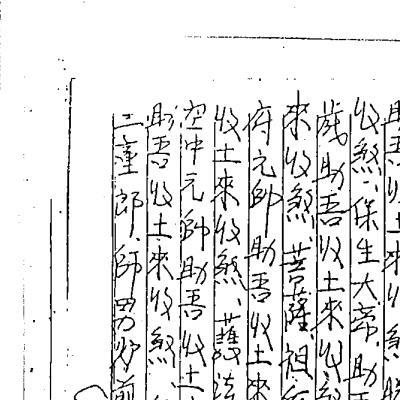 助吾收土來收煞
收煞、保生大帝、助吾
歲助吾收土來收煞
來收煞、菩薩祖
府元帥助吾收土來
收土來收煞、護法
空中元帥助吾收土
助吾收土來收煞
三童郎、師男